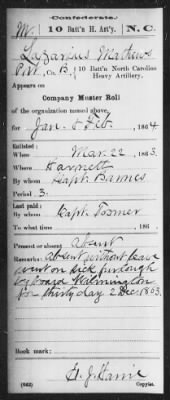 Confederate.
M | 10 Batt'n H. Art'y. | N. C.
Lazarus Mathews
Pvt., Co. B, 10 Batt'n North Carolina
Heavy Artillery.
Appears on
Company Muster Roll
of the organization named above,
for Jan. & Feb., 1864.
Enlisted:
When Mar. 22, 1863.
Where Harnett
By whom Capt. Barnes
Period 3.
Last paid:
By whom Capt. Toomer
To what time , 186 .
Present or absent Absent
Remarks: Absent without leave
went on sick furlough
by board Wilmington
for thirty day 2 Dec. 1863.
Book mark:
(642) Copyist.